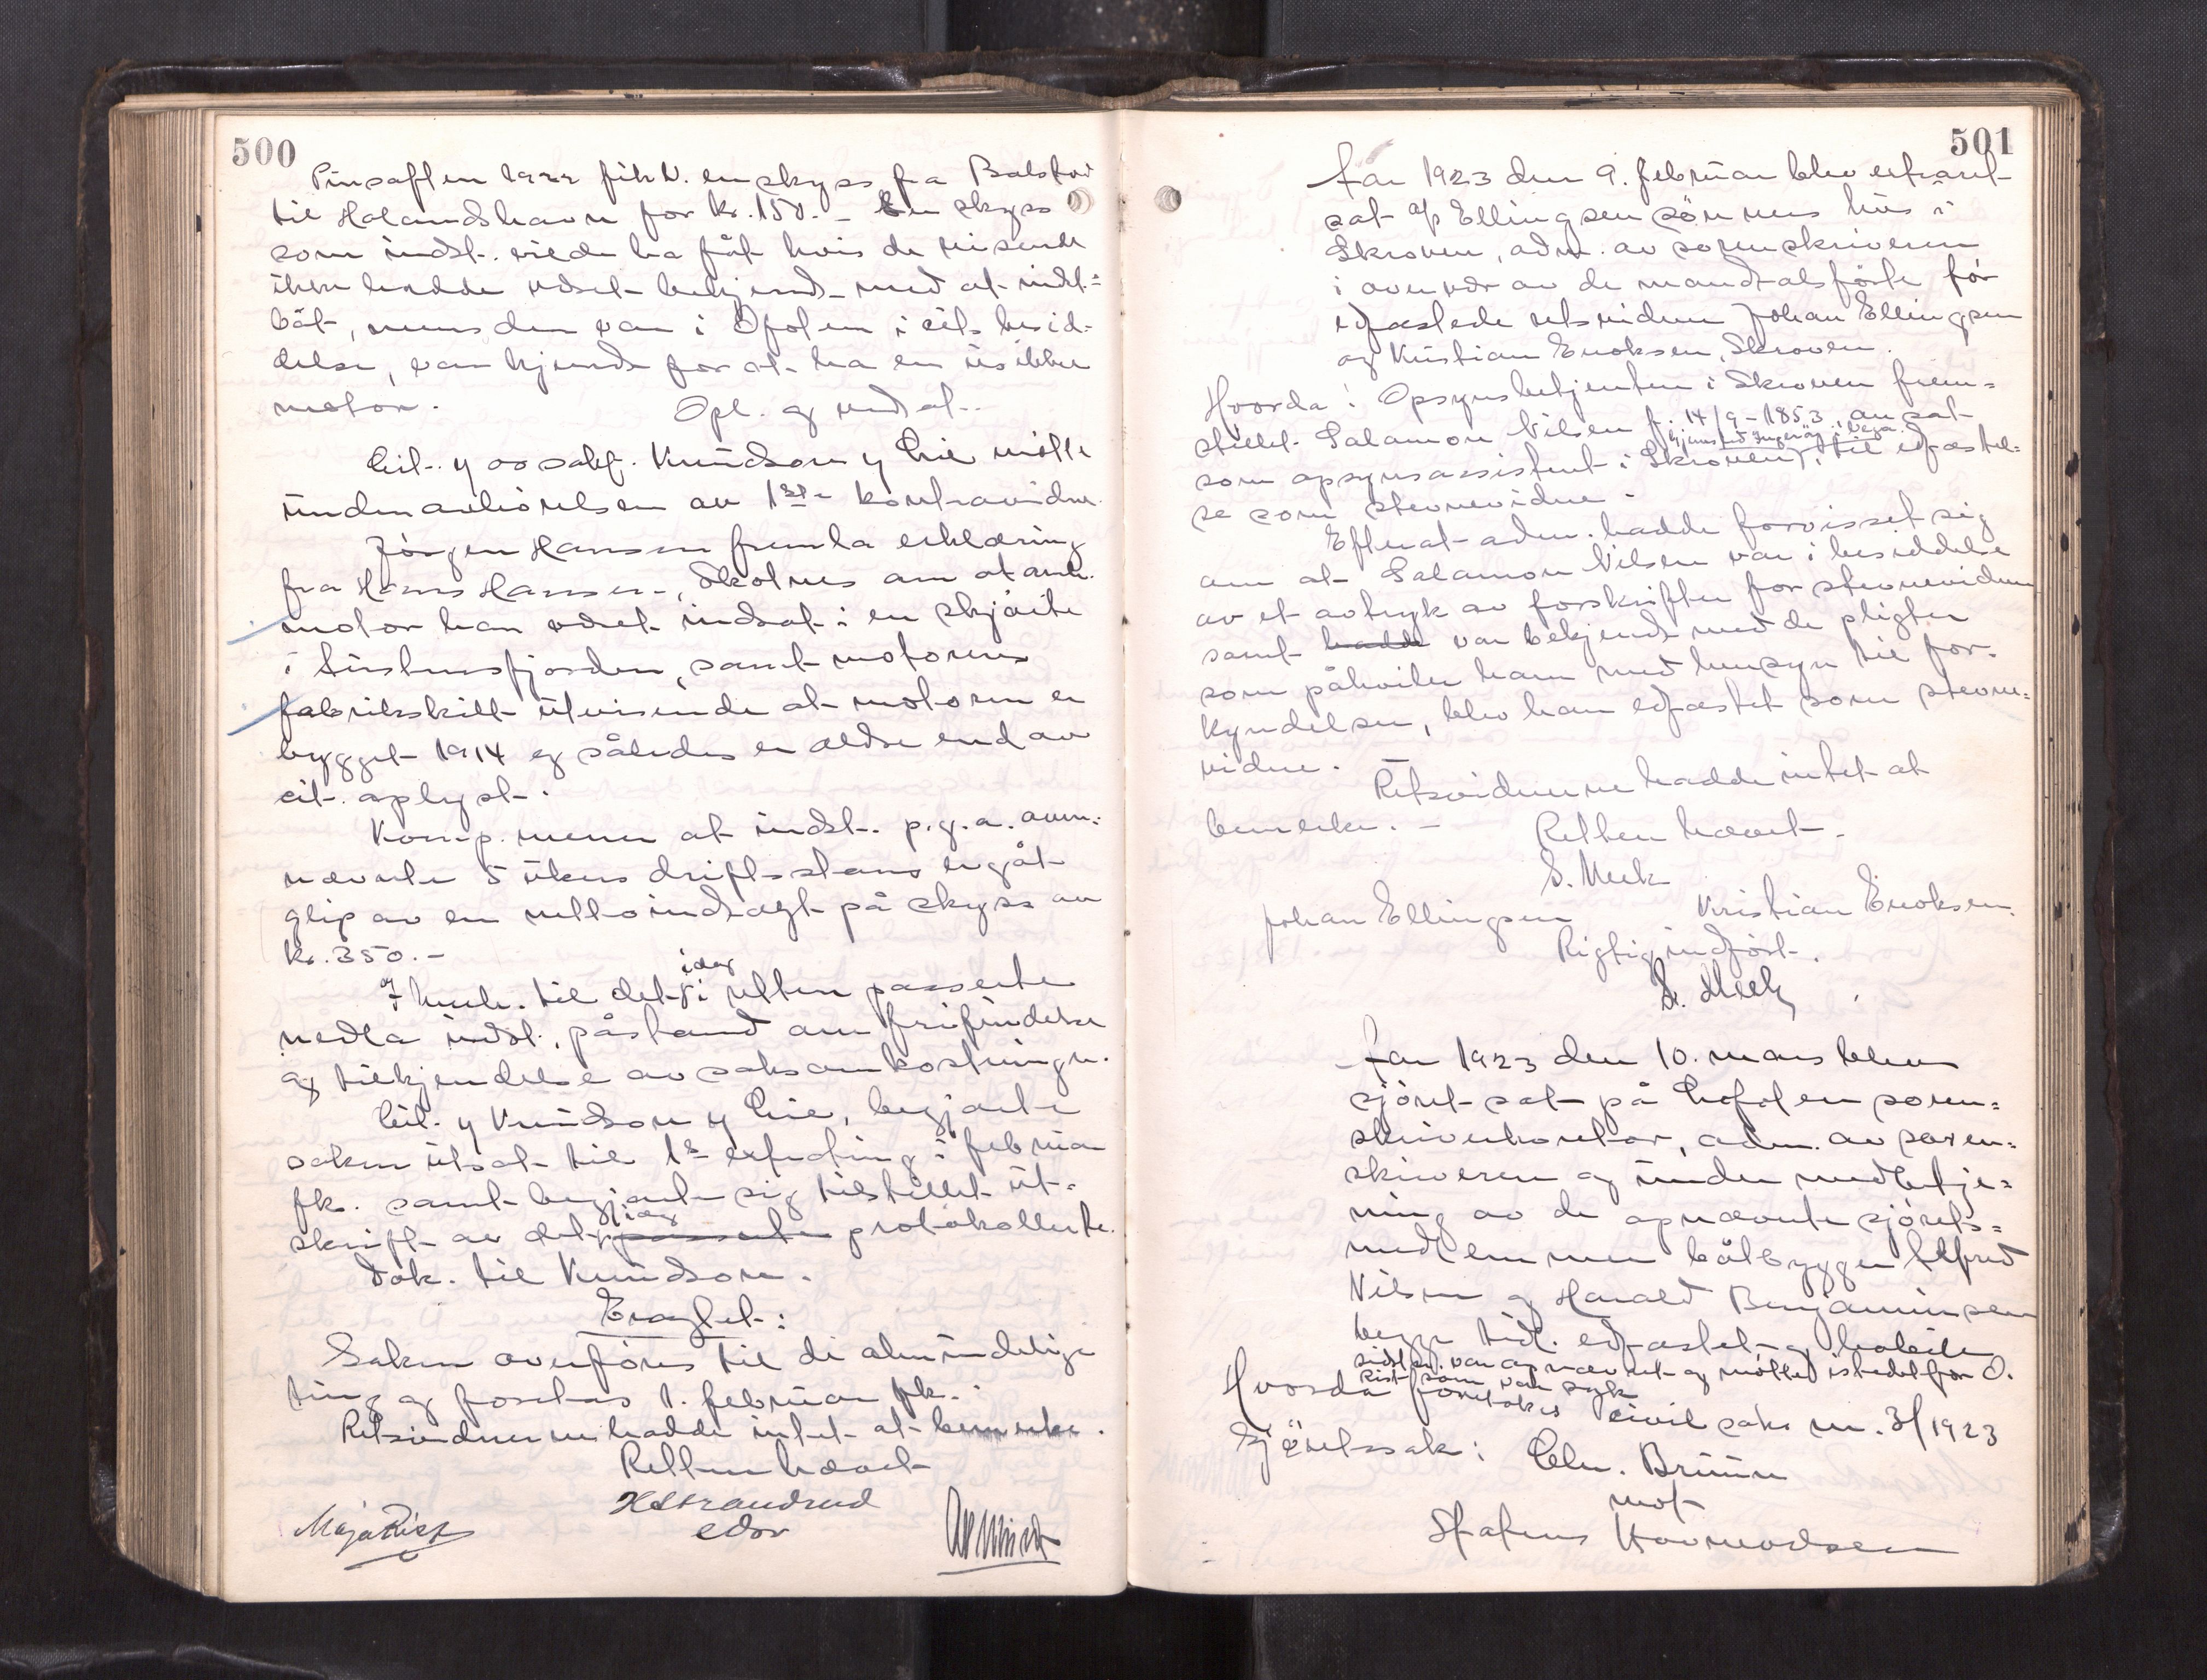 500
Pinsaften 1922 fik N. en skyss fra Balstad
til Holandshavn for kr. 150.- En skyss
som indst. vilde ha fåt hvis de reisende
ikke hadde været bekjendt med at indst.=
båt, mens den var i Ofoten i cits besid-
delse, var kjendt for at ha en usikker
motor. Opl. og vedtat.
Cit. og o o saksf. Knudson og Lie møtte
under avhörelsen av 1ste kontravidne.
Jörgen Hansen fremla erklæring
fra Hans Hansen, Skotnes om at omh.
motor han været indsat i en skjöite
i , samt motorens
fabrikskilt utvisende at motoren er
bygget 1914 og således er ældre end av
cit. oplyst.
Komp. mener at indst. p.g.a. oven-
nævnte 5 ukers driftsstans er gåt
glip av en nettoindtægt på skyss av
kr. 350.-
I henh. til det idag i retten passerte
nedla indst. påstand om frifindelse
og tilkjendelse av saksomkostninger.
Cit. og Knudson og Lie, begjærte
saken utsat til 1ste extrating i februar
fk. samt begjærte sig tilstillet ut-
skrift av det idag passerte protokollerte.
Dok. til Knudson.
Eragtet:
Saken overföres til de almindelige
ting og foretas 1. februar fk.
Retsvidnerne hadde intet at bemerke.
Retten hævet
HStrandrud
Maja Rist edor
501
Aar 1923 den 9. februar blev extraret
sat A/S Ellingsen sönners hus i
Skroven, adm. av sorenskriveren
i overvær av de mandtalsförte før
edfæstede retsvidner Johan Ellingsen
og Kristian Enoksen, Skroven.
Hvorda! Opsynsbetjenten i Skroven frem=
stillet Salamon Nilsen f. 14/9-1853, ansat
hjemsted i Vega
som opsynsassistent i Skroven, til edfæstel=
se som stevnevidne.
Efterat adm. hadde forvisset sig
om at Salamon Nilsen var i besiddelse
av et avtryk av forskrifter for stevnevidner
samt hadde var bekjendt med de pligter
som påhviler ham med hensyn til for=
kyndelser, blev han edfæstet som stevne=
vidne.
Retsvidnerne hadde intet at
bemerke. - Retten hævet.
S. Meek
Johan Ellingsen Kristian Enoksen.
Rigtig indfört.
S. Meek
Aar 1923 den 10. mars blev
sjöret sat på Lofoten soren=
skriverkontor, adm. av soren=
skriveren og under medbetje=
ning av de opnævnte sjörets=
medlemmer båtbygger Alfred
Nilsen og Harald Benjaminsen
begge tidl. edfæstet og
sidstn. var opnævnt og møtte istedetfor O.
Rist som var syk
Hvorda foretokes civil sak nr. 3/1923
Sjöretssak: Chr. Bruun
mot
Hovmodsen